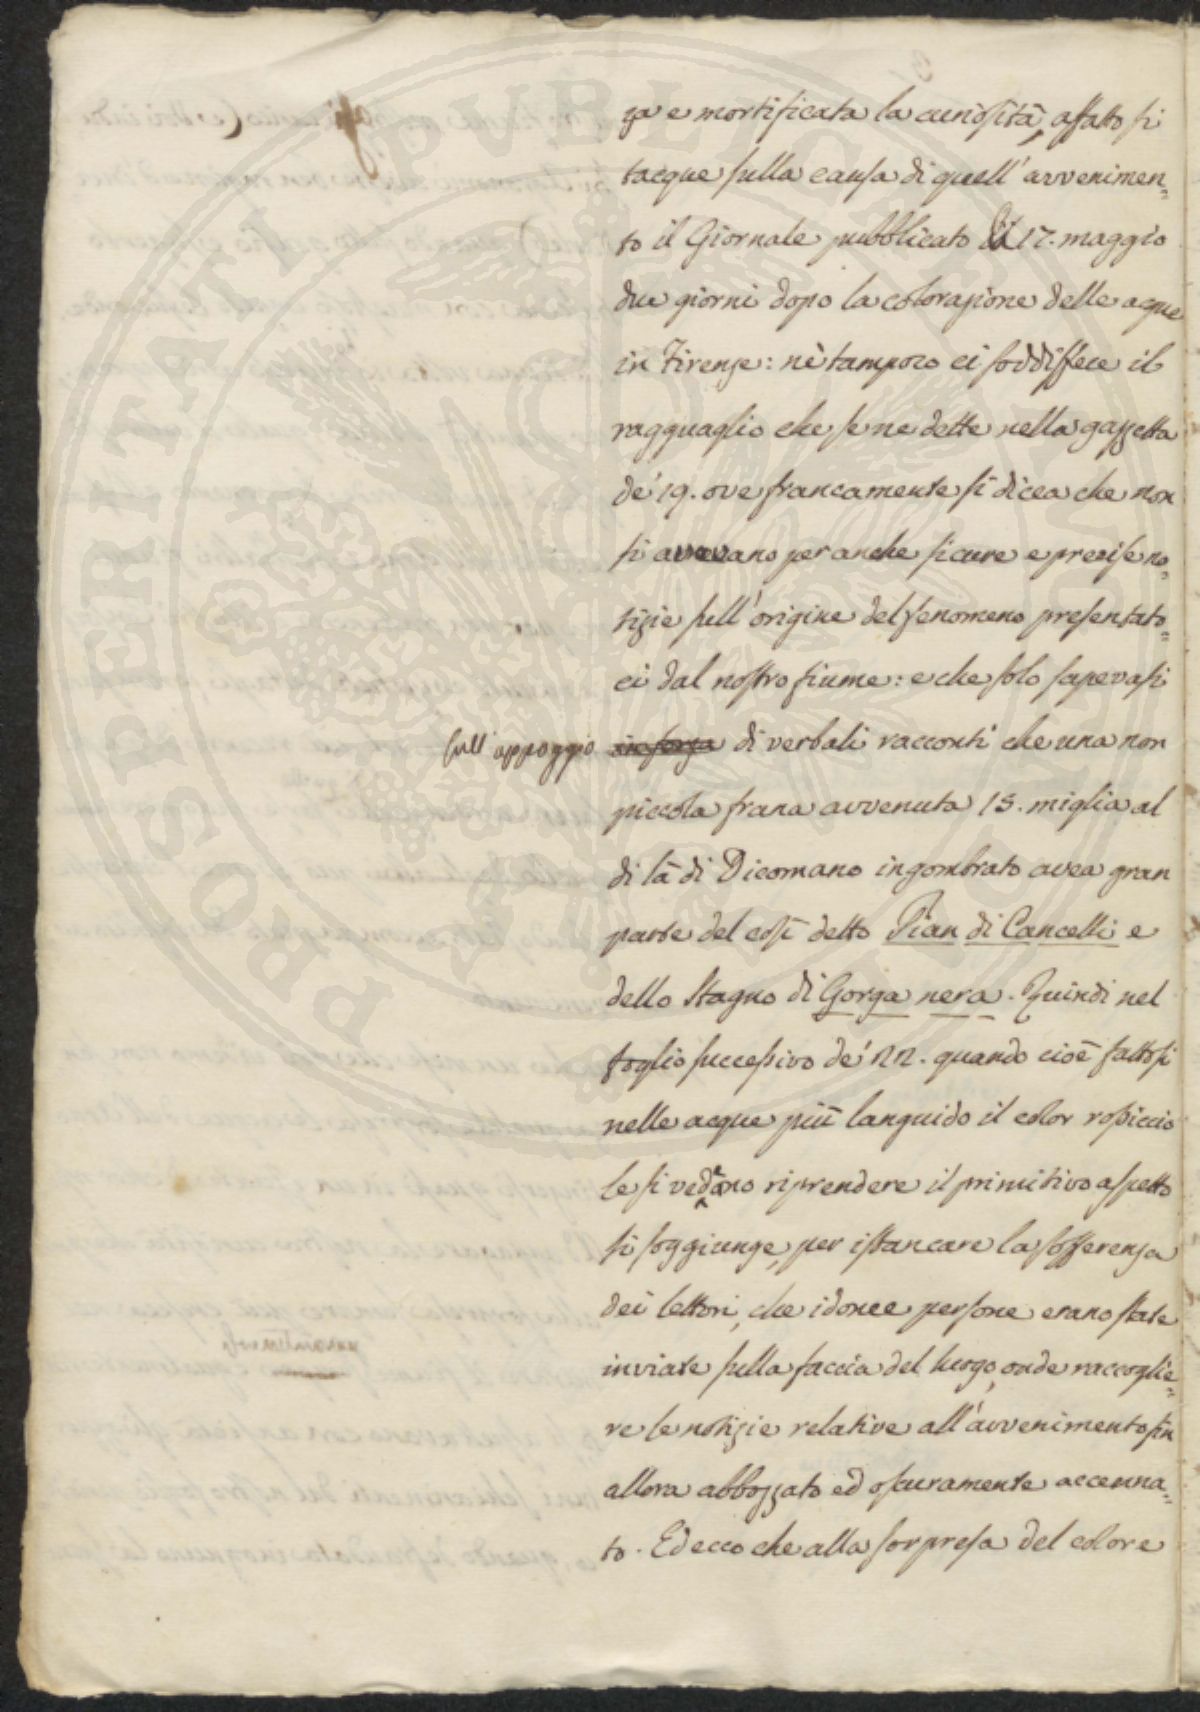 za e mortificata la curiosità, affatto si
tacque sulla causa di quell'avvenimen=
to il Giornale pubblicato il 17. maggio
due giorni dopo la colorazione delle acque
in Firenze: nè tampoco ci soddisfece il
ragguaglio che se ne dette nella gazzetta
de' 19. ove francamente si dicea che non
si avevano per anche sicure e precise no=
tizie sull'origine del fenomeno presentato=
ci dal nostro fiume: e che solo sapevasi
sull'appoggio in forza di verbali racconti che una non
piccola frana avvenuta 15. miglia al
di là di Dicomano ingombrato avea gran
parte del così detto Pian di Cancelli e
dello Stagno di Gorga nera. Quindi nel
foglio successivo de' 22. quando cioè fattosi
nelle acque più languido il color rossiccio
le si vedano riprendere il primitivo aspetto
si soggiunge, per istancare la sofferenza
dei lettori, che idonee persone erano state
inviate sulla faccia del luogo, onde raccoglie=
re le notizie relative all'avvenimento sin
allora abbozzato ed oscuramente accenna=
to. Ed ecco che alla sorpresa del colore
PROSPERITATI PVBLICAE